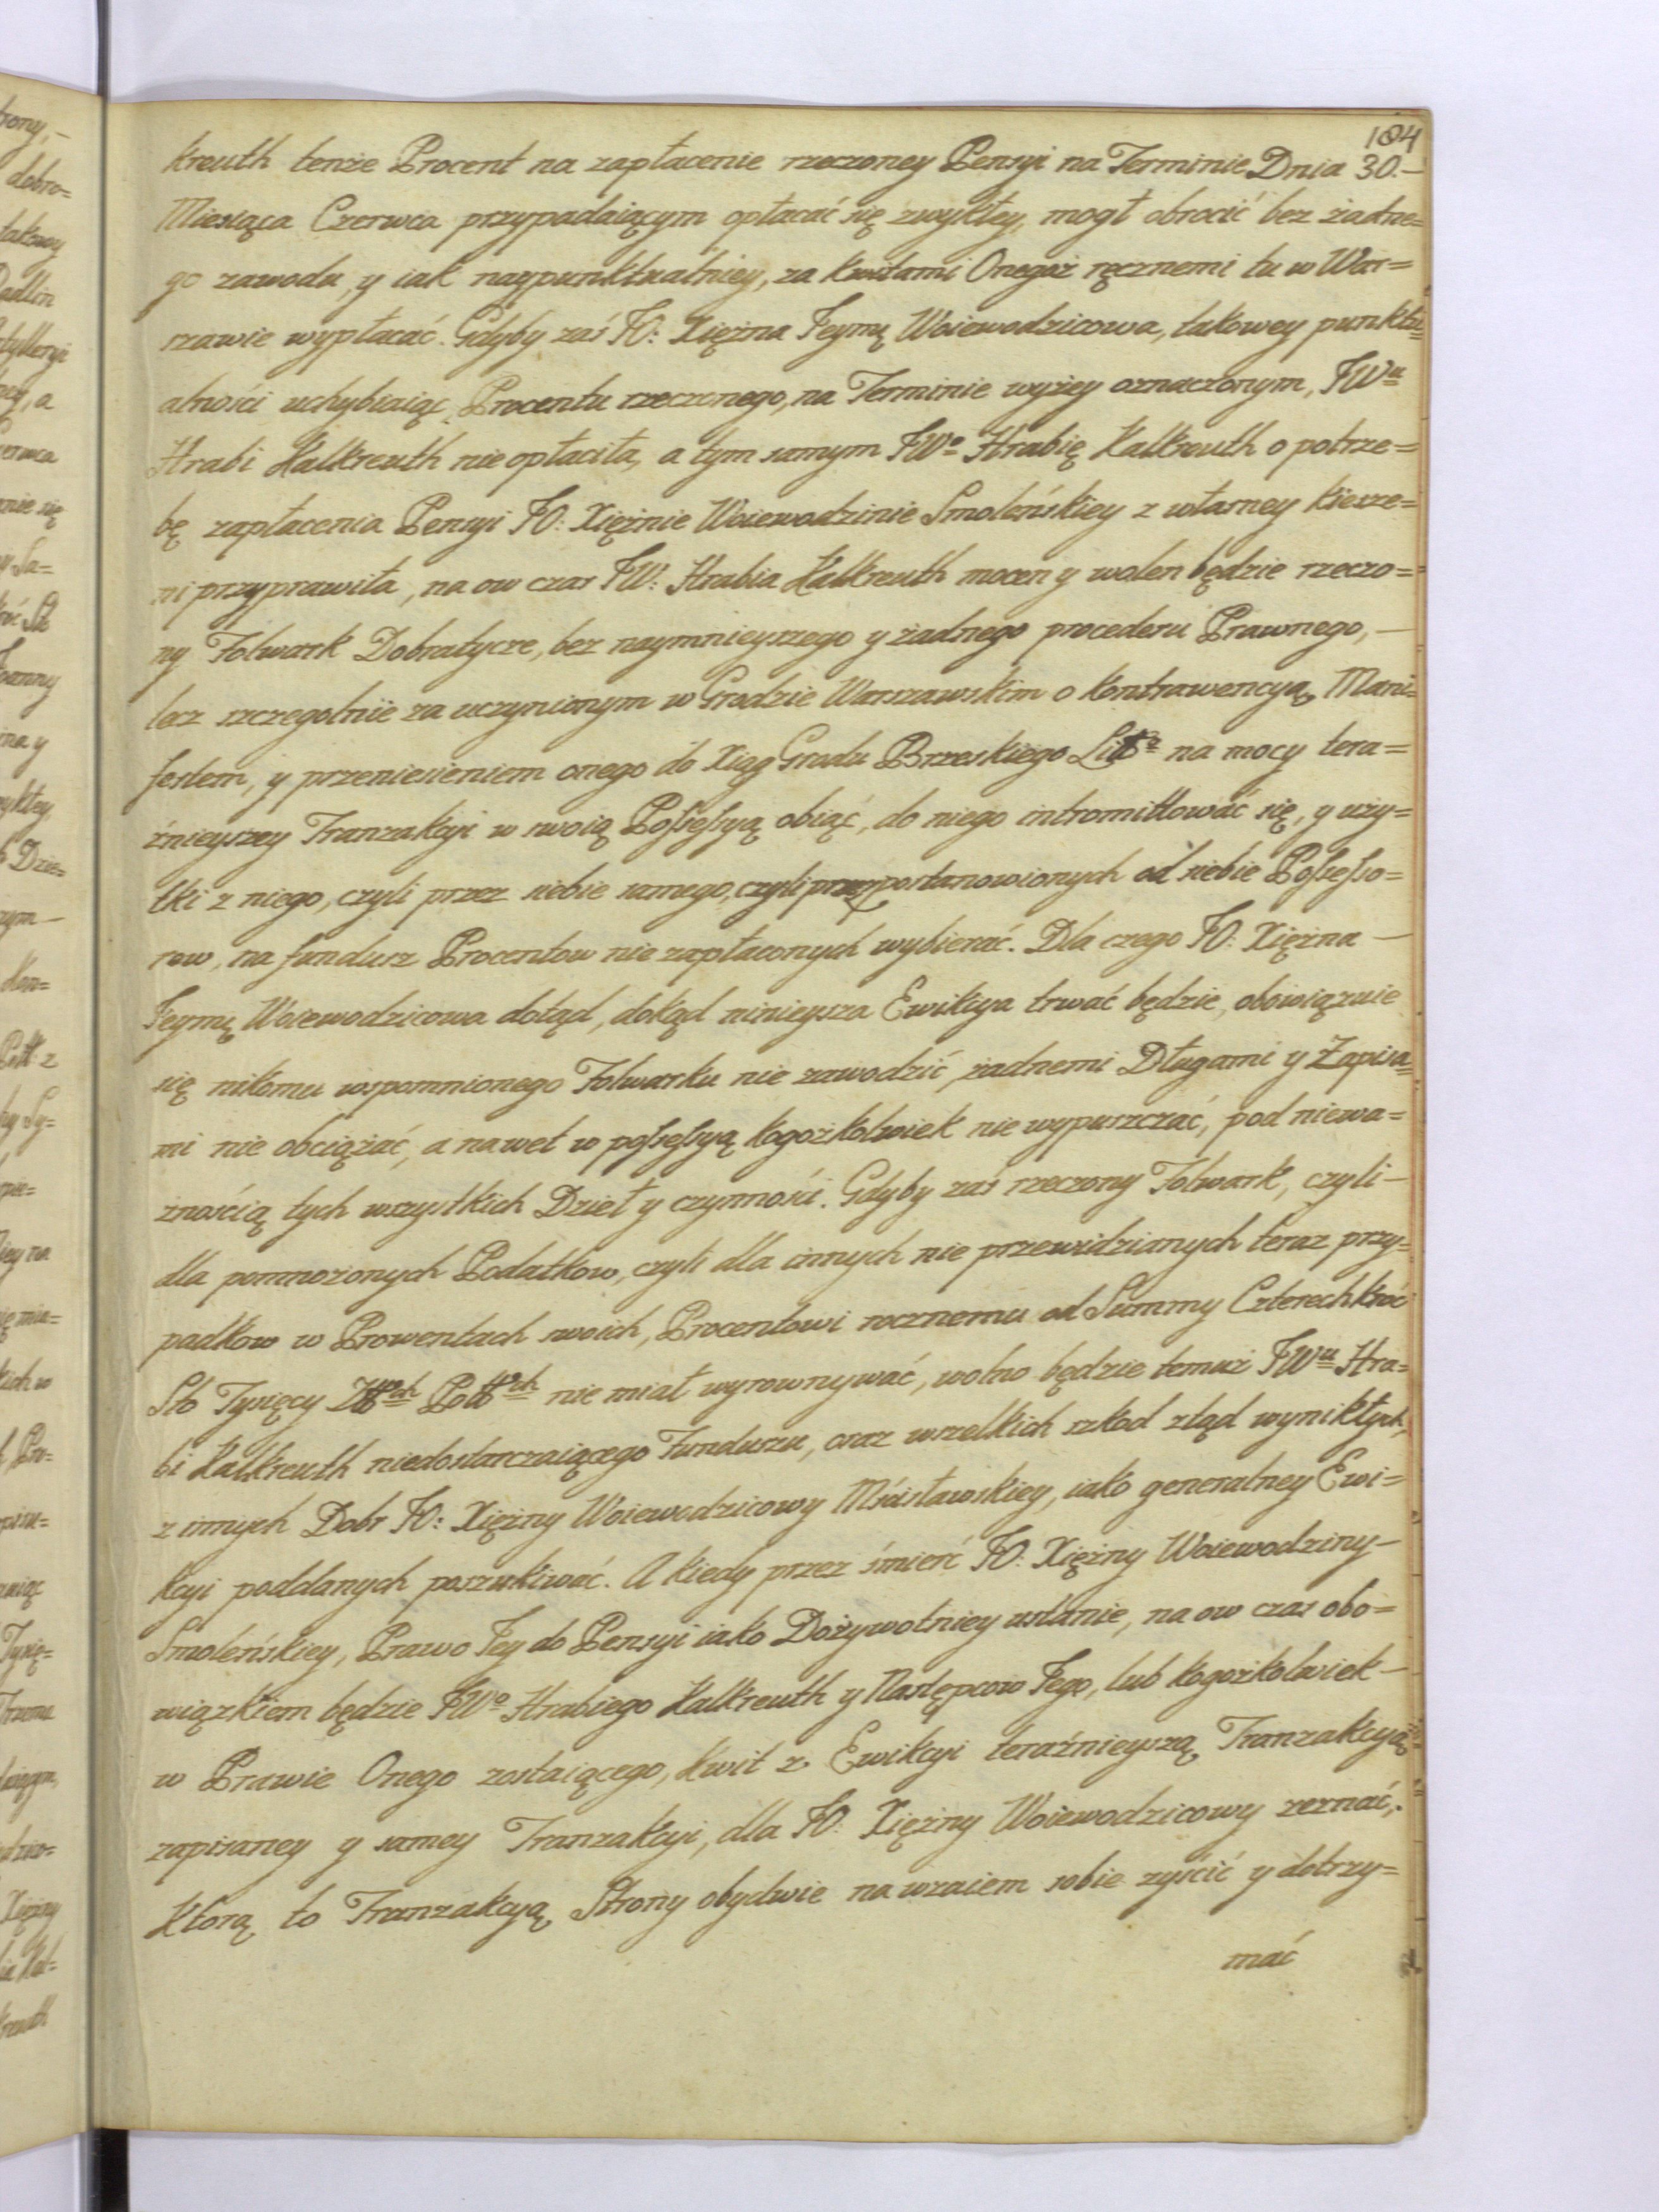 104
kreuth tenże Procent na zapłacenie rzeczoney Pensyi na Terminie Dnia 30.-
Miesiąca Czerwca przypadaiącym opłacać się zwykłey, mogł obrocić bez żadne=
go zawodu, y iak naypunktualniey, za kwitami Onegoż ręcznemi tu w War=
szawie wypłacać. Gdyby zaś JO: Xiężna Jeymę Woiewodzicowa, takowey punktu=
alności uchybiaiąc, Procentu rzeczonego, na Terminie wyżey oznaczonym, JWu
Hrabi Kalkreuth nie opłaciła, a tym samym JWo Hrabię Kalkreuth o potrze=
bę zapłacenia Pensyi JO: Xiężnie Woiewodzinie Smoleńskiey z własney kiesze=
ni przyprawiła, na ow czas JW: Hrabia Kalkreuth mocen y wolen będzie rzeczo=
ny Folwark Dobratycze, bez naymnieyszego y żadnego procederu Prawnego,-
lecz szczegolnie za uczynionym w Grodzie Warszawskim o kontrawencyą Mani=
festem, y przeniesieniem onego do Xiąg Grodu Brzeskiego Litto na mocy tera=
źnieyszey Tranzakcyi w swoią Possessyą obiąć, do niego intromittować się, y uży=
tki z niego, czyli przez siebie samego, czyli przez postanowionych od siebie Possesso=
row, na fundusz Procentow nie zapłaconych wybierać. Dla czego JO: Xiężna-
Jeymę Woiewodzicowa dotąd, dokąd ninieysza Ewikcya trwać będzie, obowiązuie
się nikomu wspomnionego Folwarku nie zawodzić, żadnemi Długami y Zapisa=
mi nie obciążać, a nawet w possessyą kogożkolwiek nie wypuszczać, pod niewa=
żnością tych wszystkich Dzieł y czynności. Gdyby zaś rzeczony Folwark, czyli-
dla pomnożonych Podatkow, czyli dla innych nie przewidzianych teraz przy=
padkow w Prowentach swoich, Procentowi rocznemu od Summy Czterechkroć
Sto Tysięcy Złłch Polłch nie miał wyrownywać, wolno będzie temuż JWu Hra=
bi Kalkreuth niedostarczaiącego Funduszu, oraz wszelkich szkod ztąd wynikłych,
z innych Dobr JO: Xiężny Woiewodzicowy Mścisławskiey, iako generalney Ewi=
kcyi poddanych poszukiwać. A kiedy przez śmierć JO: Xiężny Woiewodziny-
Smoleńskiey, Prawo Jey do Pensyi iako Dożywotniey ustanie, na ow czas obo=
wiązkiem będzie JWo Hrabiego Kalkreuth y Następcow Jego, lub kogożkolwiek-
w Prawie Onego zostaiącego, kwit z Ewikcyi teraźnieyszą Tranzakcyą
zapisaney y samey Tranzakcyi, dla JO: Xiężny Woiewodzicowy zeznać,
Którą to Tranzakcyą Strony obydwie na wzaiem sobie zyścić y dotrzy=
mać